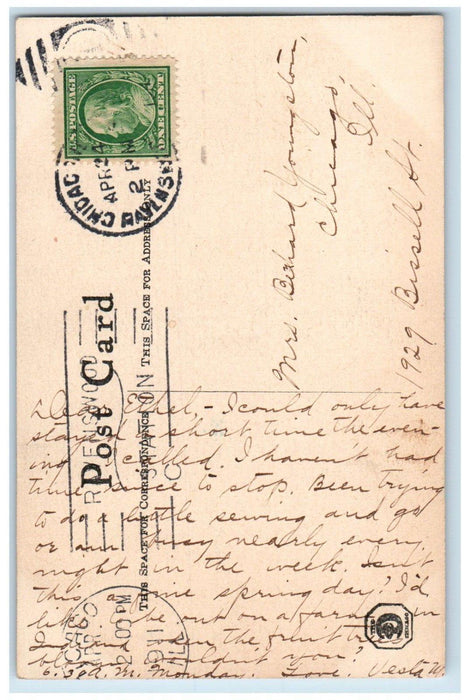 U.S. POSTAGE
ONE CENT
APR 24
2 PM
RAVENSWOOD
STATION
CHICAGO
2 00 PM
1911
ILL.
Post Card
THIS SPACE FOR CORRESPONDENCE
THIS SPACE FOR ADDRESS ONLY
Mrs. Youngston,
Chicago,
Ill.
1929 Bissell St.
Dear Ethel,- I could only have
stayed a short time the even-
ing I called. I havent had
time since to stop. Been trying
to do a little sewing and go
or am busy nearly every
night in the week. Isn't
this a fine spring day? I'd
like to be out on a farm in
Indiana when the fruit trees
bloom. Wouldn't you?
6:30 A.M. Monday. Love, Vesta W.